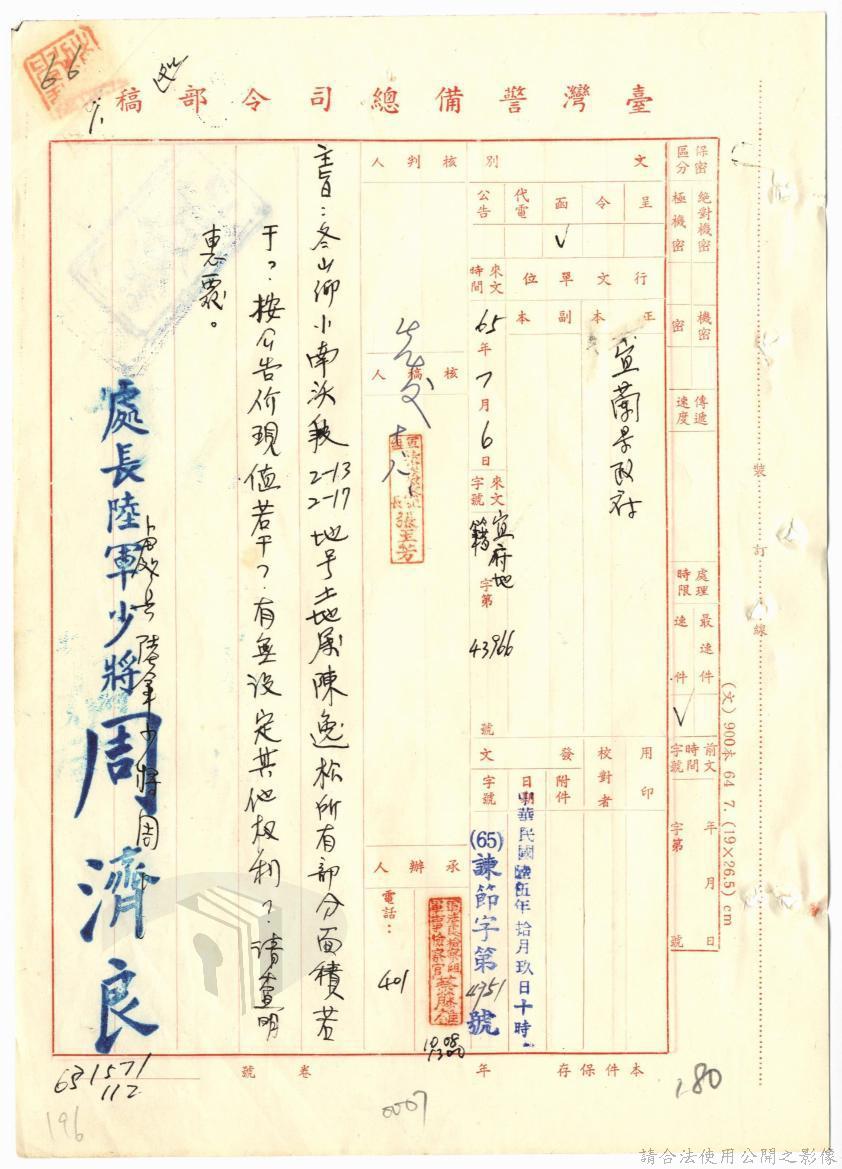 臺灣警備總司令部稿
66
保密區分
絕對機密
極機密
機密
密
傳遞速度
處理時限
最速件
速件
√
前文時間字號
年 月 日
字第 號
文別
呈
令
函
√
代電
公告
行文單位
正本
副本
宜蘭縣政府
來文時間
65年7月6日
來文字號
宜府地籍字第43966號
用印
校對者
發文
附件
日期
中華民國陸伍年拾月玖日十時
字號
(65)諫節字第4951號
核判人
核稿人
張玉芳
承辦人
電話：
401
主旨：冬山鄉小南沃段2-13 2-17地号土地屬陳逸松所有部分面積若
干？按公告价現值若干？有無設定其他权利？請查明
惠覆。
處長陸軍少將周濟良
處長陸軍少將周
本件保存 年
卷 號
65
1571
112
196
0007
180
裝 訂 線
(火) 900本 64 7. (19×26.5) cm
請合法使用公開之影像